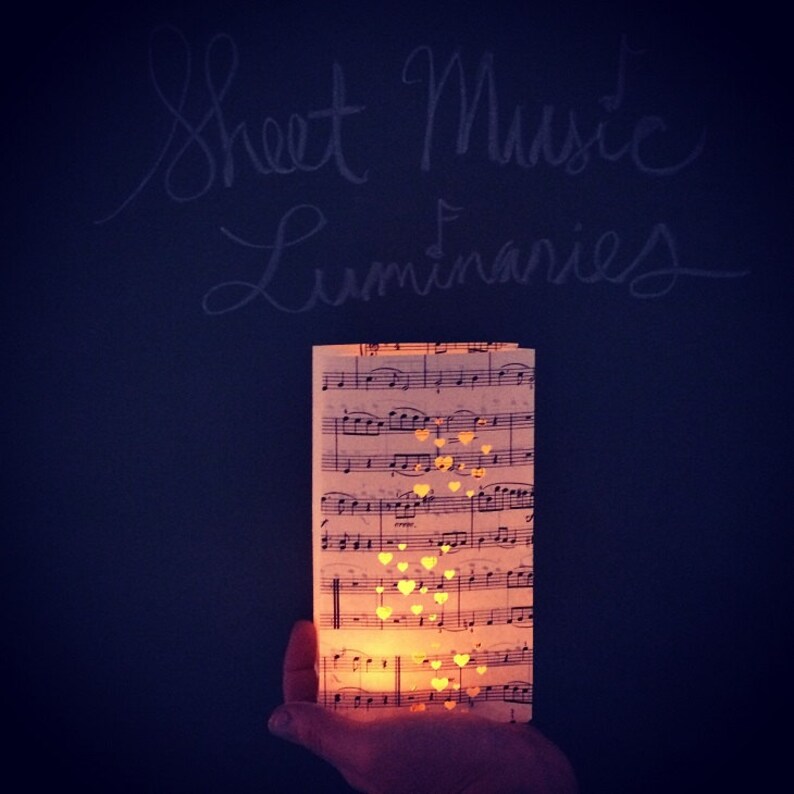 Sheet Music
Luminaries
cresc.